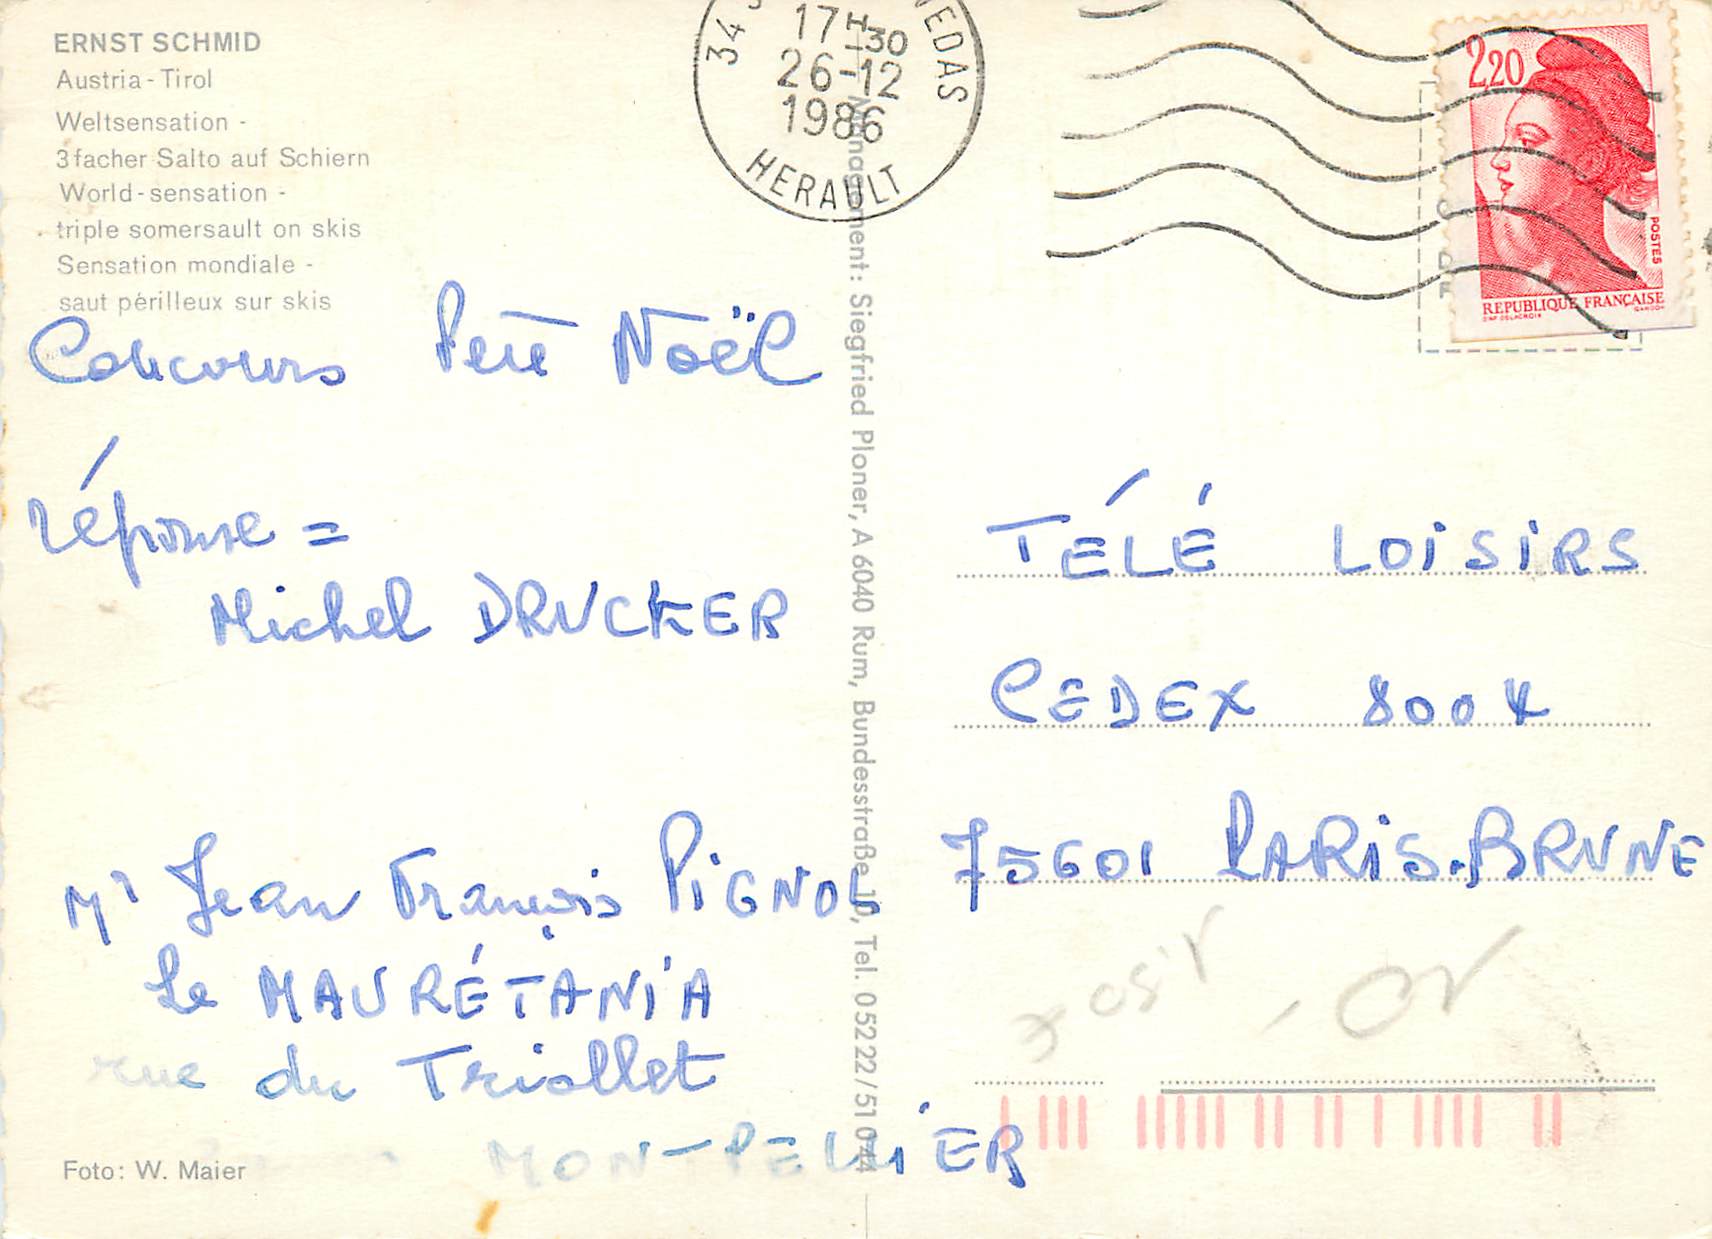 ERNST SCHMID
Austria - Tirol
Weltsensation -
3facher Salto auf Schiern
World-sensation -
triple somersault on skis
Sensation mondiale -
saut périlleux sur skis
Concours Père Noël
réponse =
Michel DRUCKER
Mr Jean François PiGNOL
Le MAURÉTANiA
rue du Triollet
MONTPELLiER
Foto: W. Maier
Management: Siegfried Ploner, A 6040 Rum, Bundesstraße 10, Tel. 05222/51044
34
17H30
26-12
1986
HERAULT
2,20
POSTES
REPUBLIQUE FRANÇAISE
TÉLÉ LOiSiRS
CEDEX 8004
75601 PARiS.BRUNE